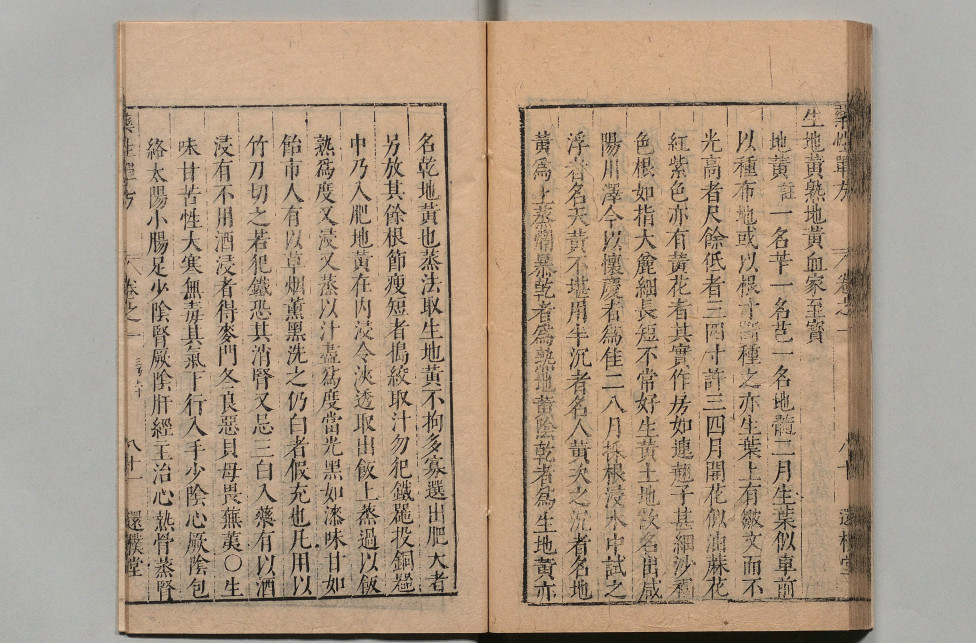 藥性單方
卷之一
八十
還樸堂
生地黃熟地黃血家至寶
地黃註一名芐一名芑一名地髓二月生葉似車前
以種布地或以根寸斷種之亦生葉上有皺文而不
光高者尺餘低者三四寸許三四月開花似油蔴花
紅紫色亦有黃花者其實作房如連翹子甚細沙褐
色根如指大麄細長短不常好生黃土地故名出咸
陽川澤今以懷慶者爲佳二八月採根浸水中試之
浮者名天黃不堪用半沉者名人黃次之沉者名地
黃爲上蒸爛暴乾者爲熟地黃陰乾者爲生地黃亦
名乾地黃也蒸法取生地黃不拘多寡選出肥大者
另放其餘根節瘦短者搗絞取汁勿犯鐵器投銅器
中乃入肥地黃在內浸令浹透取出飯上蒸過以飯
熟爲度又浸又蒸以汁盡爲度當光黑如漆味甘如
飴市人有以草烟薰黑洗之仍白者假充也凡用以
竹刀切之若犯鐵恐其消腎又忌三白入藥有以酒
浸有不用酒浸者得麥門冬良惡貝母畏蕪荑○生
味甘苦性大寒無毒其氣下行入手少陰心厥陰包
絡太陽小腸足少陰腎厥陰肝經主治心熱骨蒸腎
藥性單方
卷之一
八十一
還樸堂